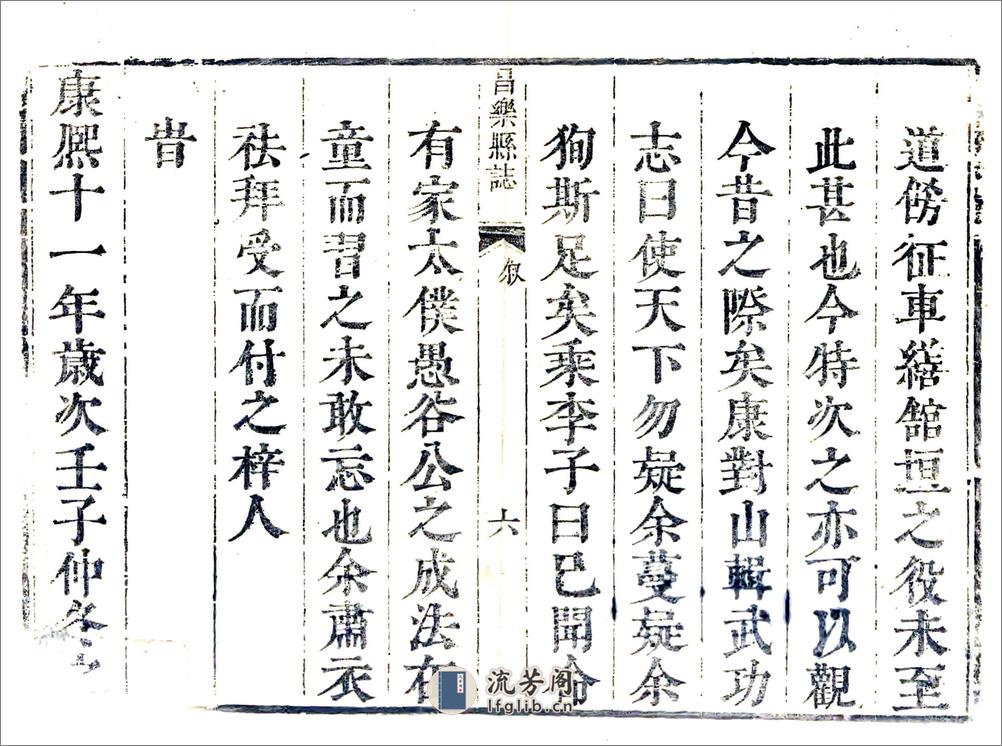 道傍征車繕舘垣之役未至
此甚也今特次之亦可以觀
今昔之際矣康對山輯武功
志曰使天下勿疑余蔓疑余
狥斯足矣乘李子曰已聞命
昌樂縣誌
叙
六
有家太僕愚谷公之成法在
童而習之未敢忘也余肅衣
祛拜受而付之梓人
旹
康熙十一年歲次壬子仲冬
流芳阁
lfglib.cn